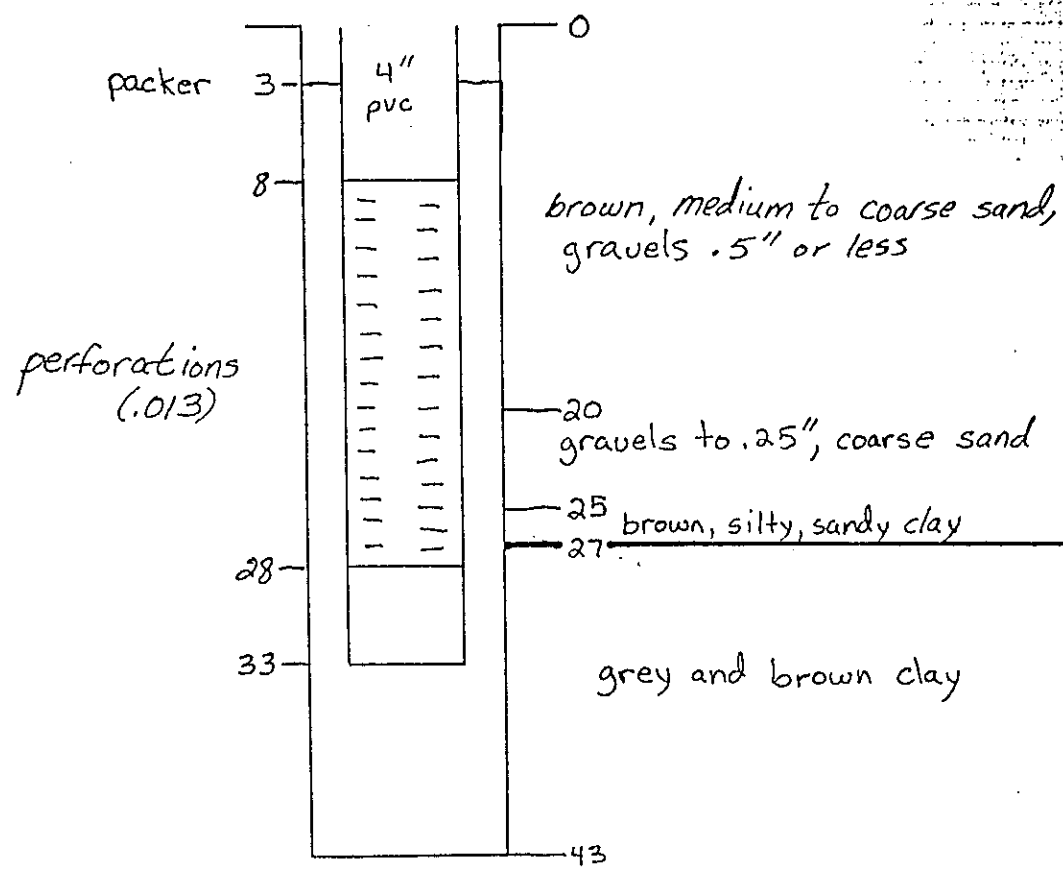 0
packer 3
4"
pvc
8
brown, medium to coarse sand,
gravels .5" or less
perforations
(.013)
20
gravels to .25", coarse sand
25
brown, silty, sandy clay
27
28
33
grey and brown clay
43